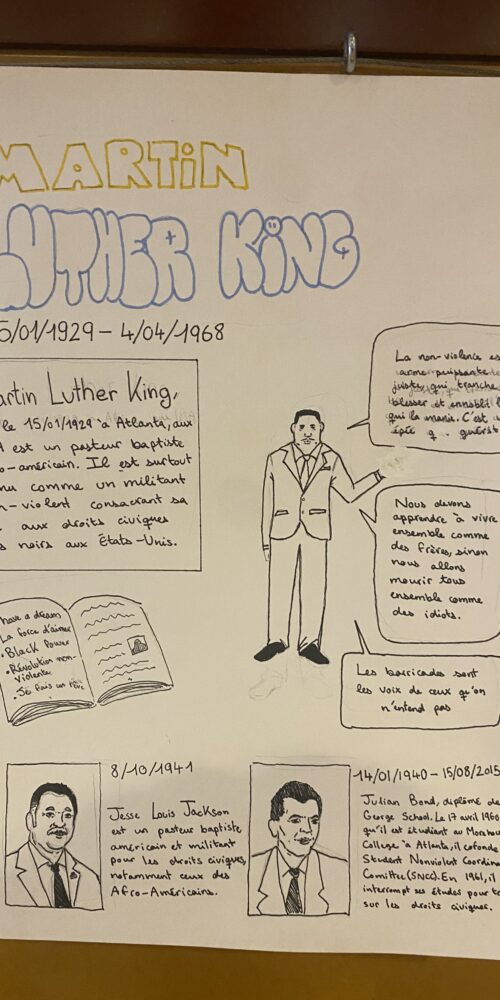 MARTiN
LUTHER KiNG
5/01/1929 – 4/04/1968
artin Luther King,
le 15/01/1929 à Atlanta, aux
A est un pasteur baptiste
o-américain. Il est surtout
nu comme un militant
n-violent consacrant sa
aux droits civiques
s noirs aux États-Unis.
La non-violence es
arme puissante
juste, qui tranche
blesser et ennobli l
qui la manie. C'est u
épée q. guérit
Nous devons
apprendre à vivre
ensemble comme
des frères, sinon
nous allons
mourir tous
ensemble comme
des idiots.
Les barricades sont
les voix de ceux qu'on
n'entend pas
have a dream
La force d'aimer
• Black Power
• Révolution non-
violente
• Je fais un rêve
8/10/1941
Jesse Louis Jackson
est un pasteur baptiste
américain et militant
pour les droits civiques,
notamment ceux des
Afro-Américains.
14/01/1940 – 15/08/2015
Julian Bond, diplômé de
George School. Le 17 avril 1960
qu'il est étudiant au Morehou
College à Atlanta, il cofonde
Student Nonviolent Coordina
Comittee (SNCC). En 1961, il
interrompt ses études pour t
sur les droits civiques.